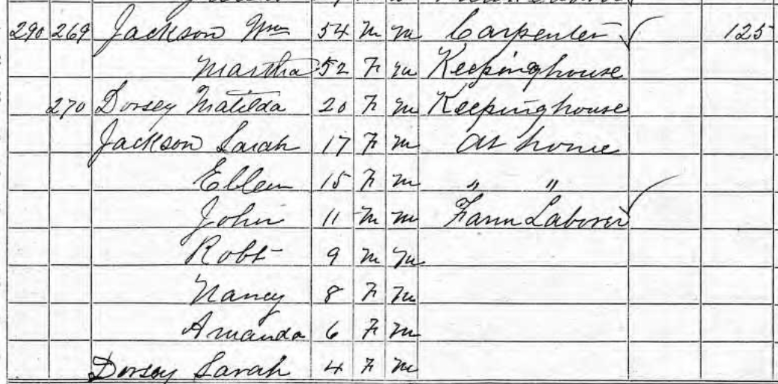 290 269 Jackson Wm 54 M M Carpenter 125
Martha 52 F M Keepinghouse
270 Dorsey Matilda 20 F M Keepinghouse
Jackson Sarah 17 F M at home
Ellen 15 F M " "
John 11 M M Farm Laborer
Robt 9 M M
Nancy 8 F M
Amanda 6 F M
Dorsey Sarah 4 F M